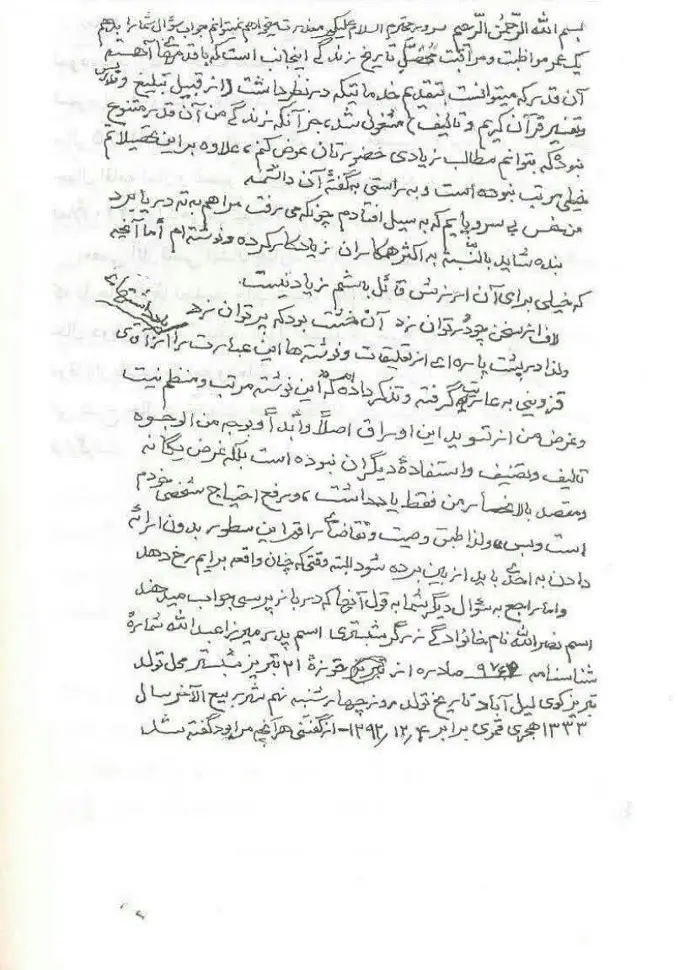 بسم الله الرّحمٰن الرّحیم سرور محترم السلام علیکم معذرت میخواهم نمیتوانم جواب سؤال شما را بدهم
یک عمر مواظبت و مراقبت مُحصّل تاریخ زندگی اینجانب است که با قدمهای آهسته
آن قدر که میتوانست بتقدیم خدماتیکه در نظر داشت (از قبیل تبلیغ و تدریس
و تفسیر قرآن کریم و تألیف) مشغول شد، جز آنکه زندگی من آن قدر متنوع
نبود که بتوانم مطالب زیادی حضورتان عرض کنم، علاوه بر این تحصیلاتم
خیلی مرتب نبوده است و به راستی به گفتهٔ آن دانشمند
من خس بی سر و پایم که به سیل افتادم چونکه می رفت مرا هم به ته دریا برد
بنده شاید بالنّسبة به اکثر همکاران زیاد کار کرده و نوشته ام اما آنچه
که خیلی برای آن ارزش قائل باشم زیاد نیست.
لاف از سخن چو دُر توان زد آن خشت بود که پر توان زد
ولذا در پشت پاره ای از تألیفات و نوشته ها این عبارت را از آقای
قزوینی به عاریه گرفته و تذکر داده ام که این نوشته مرتب و منظم نیست
و غرض من از تسوید این اوراق اصلاً و ابداً و بوجه من الوجوه
تألیف و تصنیف و استفادهٔ دیگران نبوده است بلکه غرض یگانه
و مقصد بالانحصار من فقط یادداشت، و رفع احتیاج شخصی خودم
است و بس، ولذا طبق وصیت و تقاضای راقم این سطور بدون ارائه
دادن به احدی باید از بین برده شود البته وقتی که چنان واقعه برایم رخ دهد
و اما راجع به سؤال دیگر شما به قول آنها که در بازپرسی جواب میدهند
اسم نصرالله نام خانوادگی زرگر شبستری اسم پدر میرزا عبدالله شمارهٔ
شناسنامه صادره از تبریز حوزهٔ ۲۱ تبریز شبستر محل تولد
تبریز کوی لیل آباد تاریخ تولد روز چهارشنبه نهم شهر ربیع الآخر سال
۱۳۳۳ هجری قمری برابر ۱۲۹۲/۱۲/۴ - از گفتنی هر آنچه مرا بود گفته شد